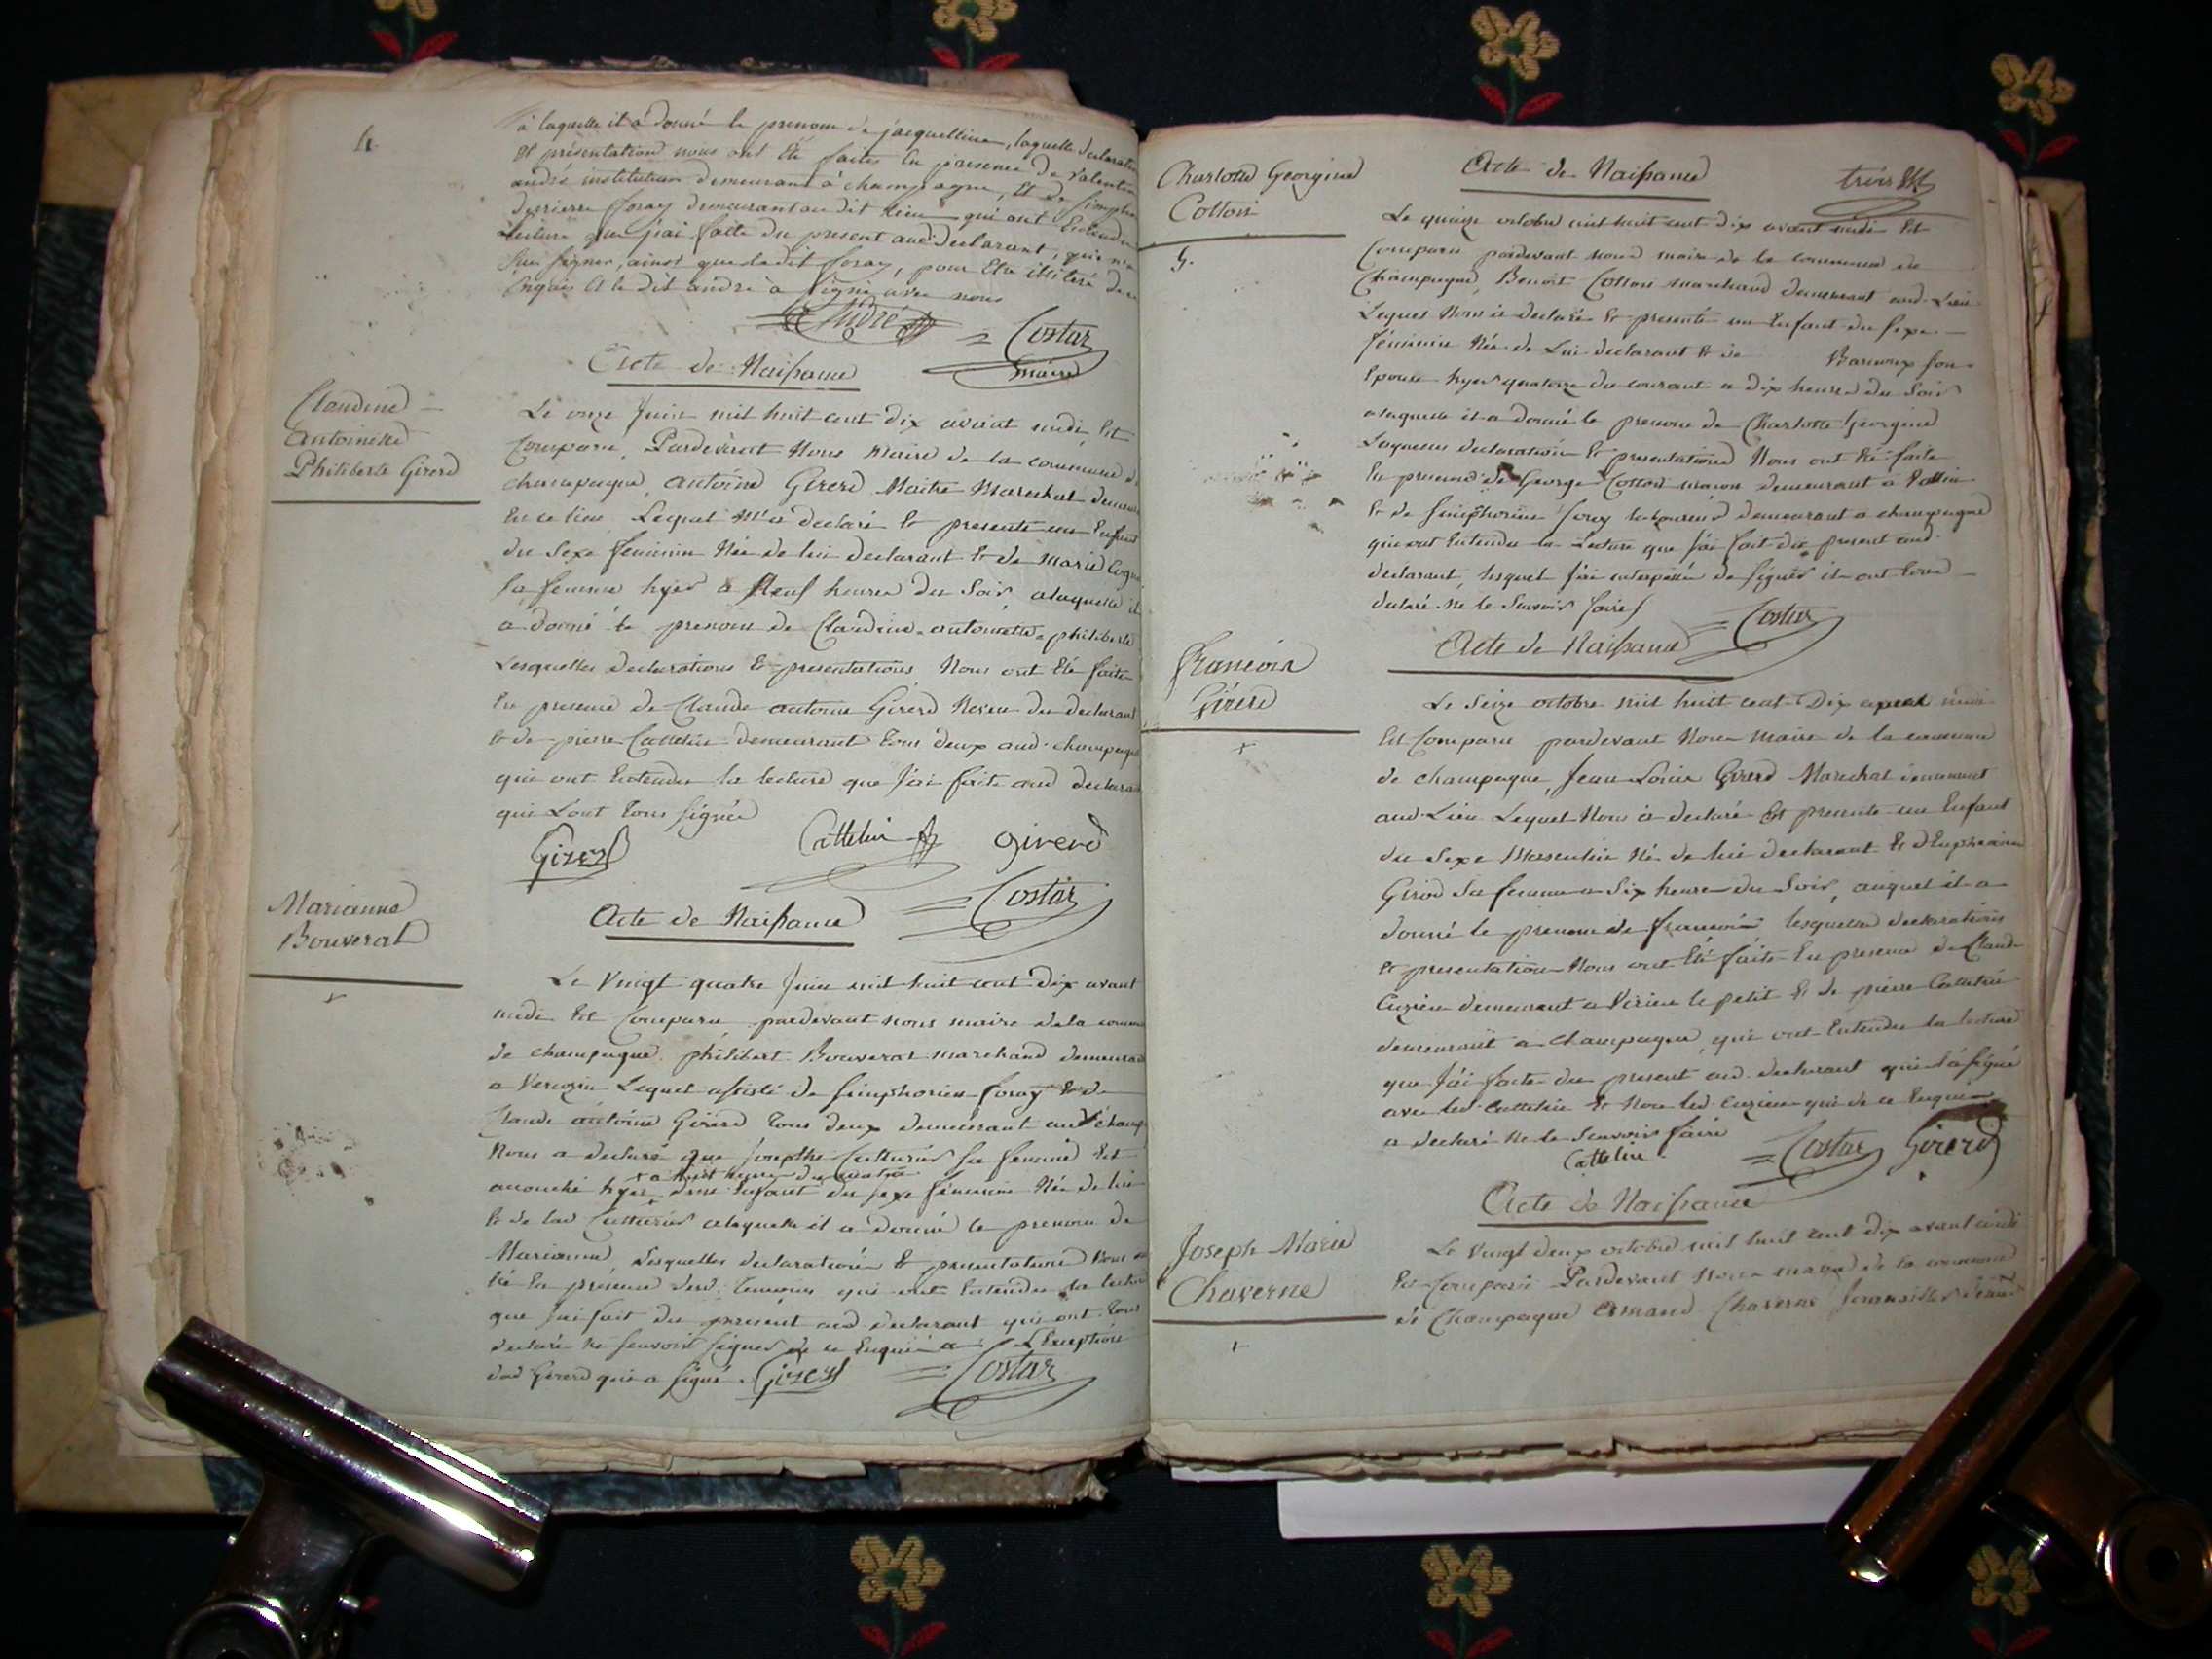 4
à laquelle il a donné le prenom de jacquelline, laquelle declaration
et présentation nous ont été faites en presence de valentin
andré instituteur demeurant à champagne, et de simphorien
foray demeurant au dit lieu qui ont entendu
lecture que j'ai faite du present aud. declarant, qui n'a
signer, ainsi que ledit foray, pour etre illiteré de ce
enquis et le dit andré a signé avec nous
André
Costaz
maire
Acte de Naissance
Claudine
Antoinette
Philiberte Girerd
Le onze Juin mil huit cent dix avant midi Est
Comparu, Pardevant Nous Maire de la commune de
champagne, Antoine Girerd Maitre Marechal demeurant
En ce lieu Lequel M'a declaré Et presenté un Enfant
du sexe feminin Née de lui declarant Et de Marie
sa femme hyer a Neuf heures du Soir, a laquelle il
a donné le prenom de Claudine-antoinette-philiberte
Lesquelles declarations Et presentations Nous ont Eté faites
En presence de Claude antoine Girerd Neveu du declarant
Et de pierre Cattelin demeurant Tous deux aud. champagne
qui ont Entendu la lecture que J'ai faite aud declarant
qui L'ont Tous signée
Girerd
Cattelin
girerd
Costaz
Acte de Naissance
Marianne
Bouverat
+
Le Vingt quatre Juin mil huit cent Dix avant
midi Est Comparu pardevant nous maire de la commune
de champagne philibert Bouverat marchand demeurant
a Lequel assisté de simphorien foray Et de
Claude antoine Girerd Tous deux demeurant aud champ
Nous a declaré que Josephe sa femme Est
+ a huit heures du matin
accouché hyer d'une Enfant du sexe feminin Née de lui
Et de lad a laquelle il a donné le prenom de
Marianne, Lesquelles declarations Et presentations Nous ont
Eté En presence desd. Temoins qui ont Entendu la lecture
que J'ai fait du present aud declarant qui ont Tous
declaré ne scavoir signer de ce Enquis a L'Exception
dud Girerd qui a signé.
Girerd
Costaz
Acte de Naissance
trois
Charlotte Georgine
Cotton
Le quinze octobre mil huit cent dix avant midi Est
Comparu pardevant nous maire de la commune de
Champagne, Benoit Cotton marchand demeurant aud. Lieu
Lequel Nous a declaré Et presenté un Enfant du sexe
féminin Née de Lui declarant Et de son
Epouse hyer quatorze du courant a dix heures du Soir
a laquelle il a donné le prenom de Charlotte Georgine
Lesquelles declaration Et presentations Nous ont Eté faite
En presence de George Cotton maçon demeurant a
Et de simphorien foray laboureur demeurant a champagne
qui ont Entendu la Lecture que J'ai fait du present aud.
declarant, lesquels J'ai interpellé de signer ils ont Tous
declaré ne le Scavoir faire
Costaz
Acte de Naissance
François
Girerd
+
Le Seize octobre mil huit cent Dix après midi
Est Comparu pardevant Nous Maire de la commune
de champagne, Jean Louis Girerd Marechal demeurant
aud Lieu Lequel Nous a declaré Et presenté un Enfant
du sexe Masculin Né de lui declarant Et
Girod sa femme a Six heures du Soir, auquel il a
donné le prenom de françois lesquelles declarations
Et presentation Nous ont Eté faite En presence de Claude
Cuzieu demeurant a Virieu le petit Et de pierre Cattelin
demeurant a champagne, qui ont Entendu la lecture
que J'ai faite du present aud. declarant qui l'a signé
avec led. Cattelin Et Nous led. Cuzieu qui de ce Enquis
a declaré ne le Scavoir faire
Cattelin
Costaz
Girerd
Acte de Naissance
Joseph Marie
Chaverne
+
Le Vingt deux octobre mil huit cent dix avant midi
Est Comparu Pardevant Nous maire de la commune
de Champagne Armand Chaverne